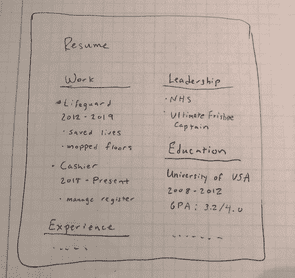 Resume
Work
Lifeguard
2012 - 2019
• saved lives
• mopped floors
• Cashier
2015 - Present
• manage register
Experience
Leadership
• NHS
• Ultimate Frisbee
Captain
Education
University of USA
2008 - 2012
GPA: 3.2/4.0